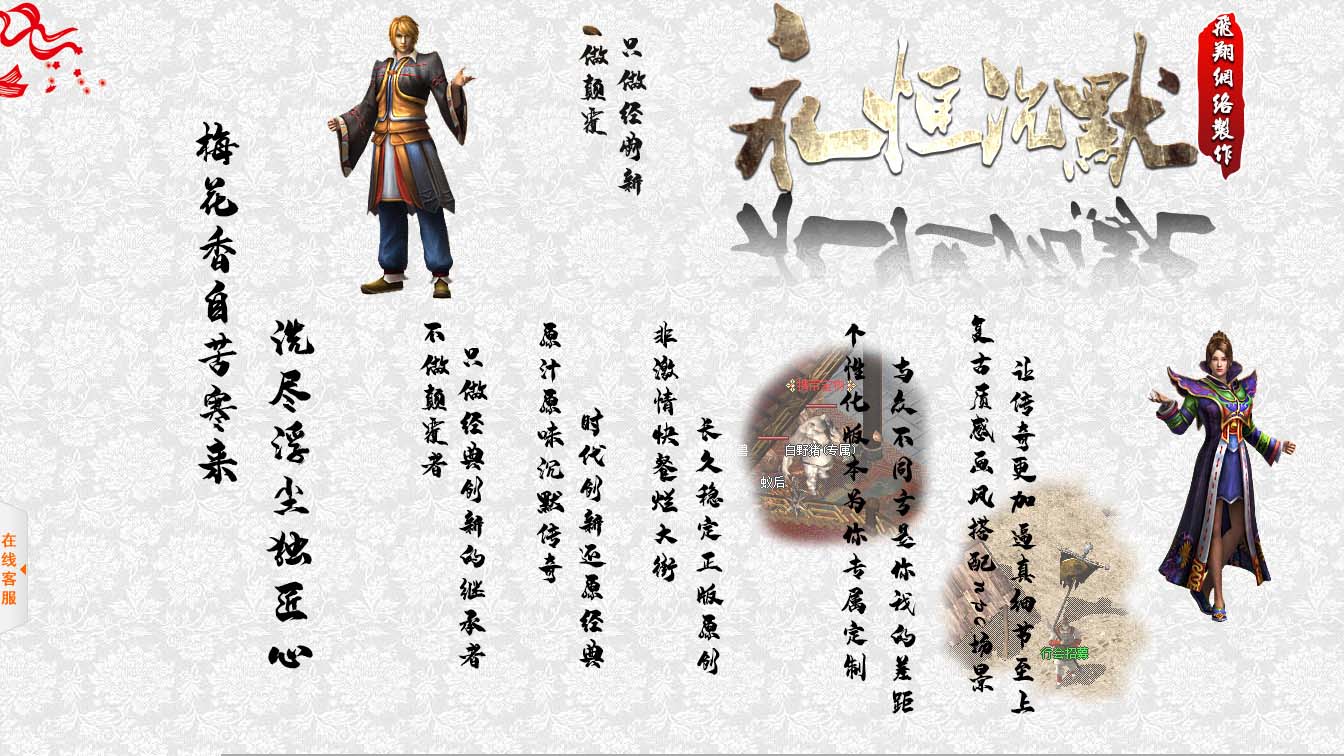 永恒沉默
飛翔網络製作
只做经典新
做颠覆
梅花香自苦寒来
洗尽浮尘独匠心
不做颠覆者
只做经典创新的继承者
原汁原味沉默传奇
时代创新还原经典
非激情快餐烂大街
长久稳定正版原创
个性化版本为你专属定制
与众不同方是你我的差距
复古质感画风搭配npc场景
让传奇更加逼真细节至上
白野猪(专属)
蚁后
行会招募
在线客服